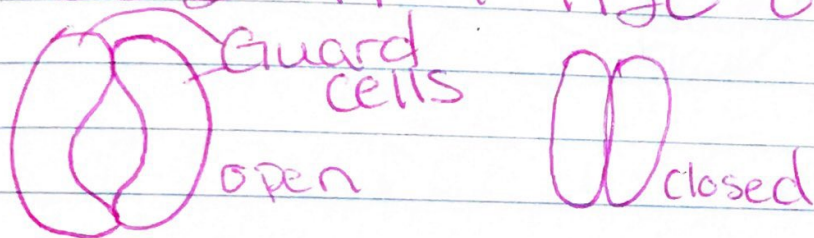 Guard
cells
open
closed